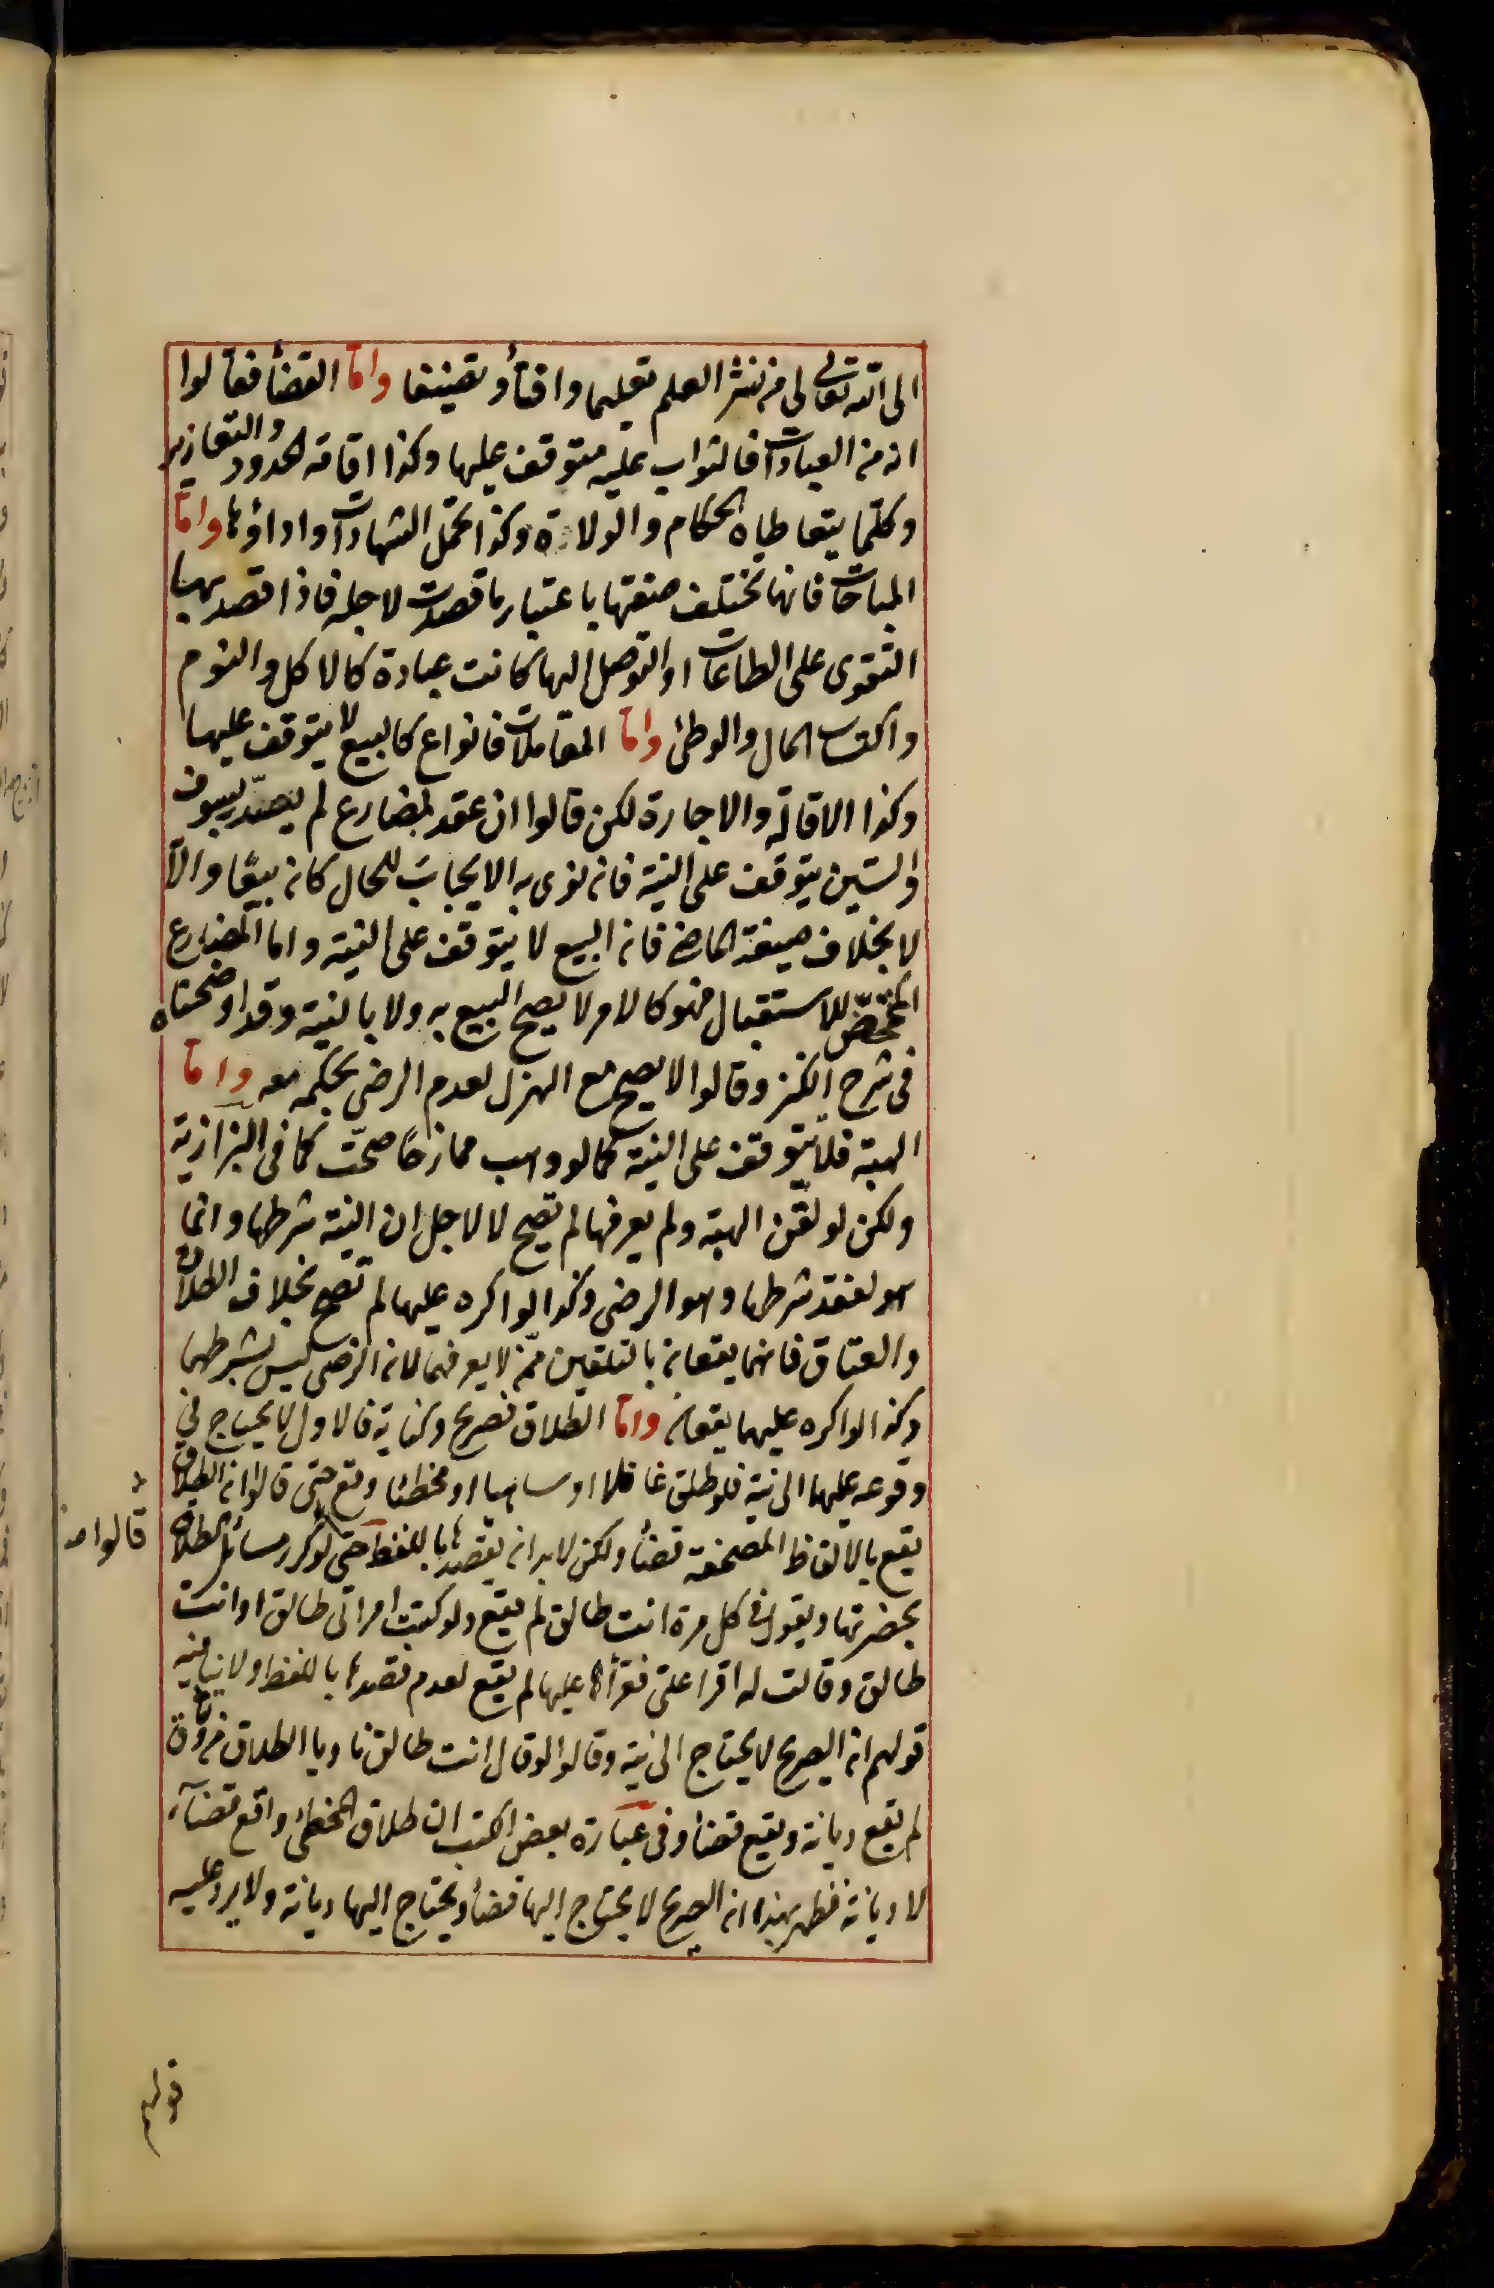 الى الله تعالى من نشر العلم تعليما وافتأ وتصنيفا واما القضأ فقالوا
انه من العبادات فالثواب عليه متوقف عليها وكذا اقامة الحدود والتعازير
وكلما يتعاطاه الحكام والولاة وكذا تحمل الشهادات واداؤها واما
المباحات فانها تختلف صفتها باعتبار ما قصدت لاجله فاذا قصد بها
التقوى على الطاعات او التوصل اليها كانت عبادة كالاكل والنوم
واكتساب المال والوطئ واما المعاملات فانواع كالبيع لا يتوقف عليها
وكذا الاقالة والاجارة لكن قالوا ان عقد بمضارع لم يصدّر بسوف
والسين يتوقف على النية فان نوى به الايجاب للحال كان بيعًا والّا
لا بخلاف صيغة الماضى فان البيع لا يتوقف على النية واما المضارع
المتمحّض للاستقبال فهو كالامر لا يصح البيع به ولا بالنية وقد اوضحناه
فى شرح الكنز وقالوا لا يصح مع الهزل لعدم الرضى بحكمه معه واما
الهبة فلا يتوقف على النية كما لو وهب ممازحًا صحّت كما فى البزازية
ولكن لو لقن الهبة ولم يعرفها لم تصح لا لاجل ان النية شرطها وانما
هو لفقد شرطها وهو الرضى وكذا لو اكره عليها لم تصح بخلاف الطلاق
والعتاق فانهما يقعان بالتلقين ممّن لا يعرفهما لان الرضى ليس بشرطهما
وكذا لو اكره عليهما يقعان واما الطلاق فصريح وكناية فالاول لا يحتاج فى
وقوعه عليها الى نية فلو طلق غافلا او ساهيا او مخطئا وقع حتى قالوا ان الطلاق
يقع بالالفاظ المصحفة قضأ ولكن لابد ان يقصدها باللفظ حتى لو كرر مسائل الطلاق
قالوا
بحضرتها ويقول فى كل مرة انت طالق لم يقع ولو كتبت امراتى طالق او انت
طالق وقالت له اقرا علىّ فقرأها عليها لم يقع لعدم قصدها باللفظ ولا ينافيه
قولهم ان الصريح لا يحتاج الى نية وقالوا لو قال انت طالق ناويا الطلاق من وثاق
لم يقع ديانة ويقع قضأ وفى عبارة بعض الكتب ان طلاق المخطئ واقع قضآء
لا ديانة فظهر بهذا ان الصريح لا يحتاج اليها قضأ ويحتاج اليها ديانة ولا يرد عليه
قولهم